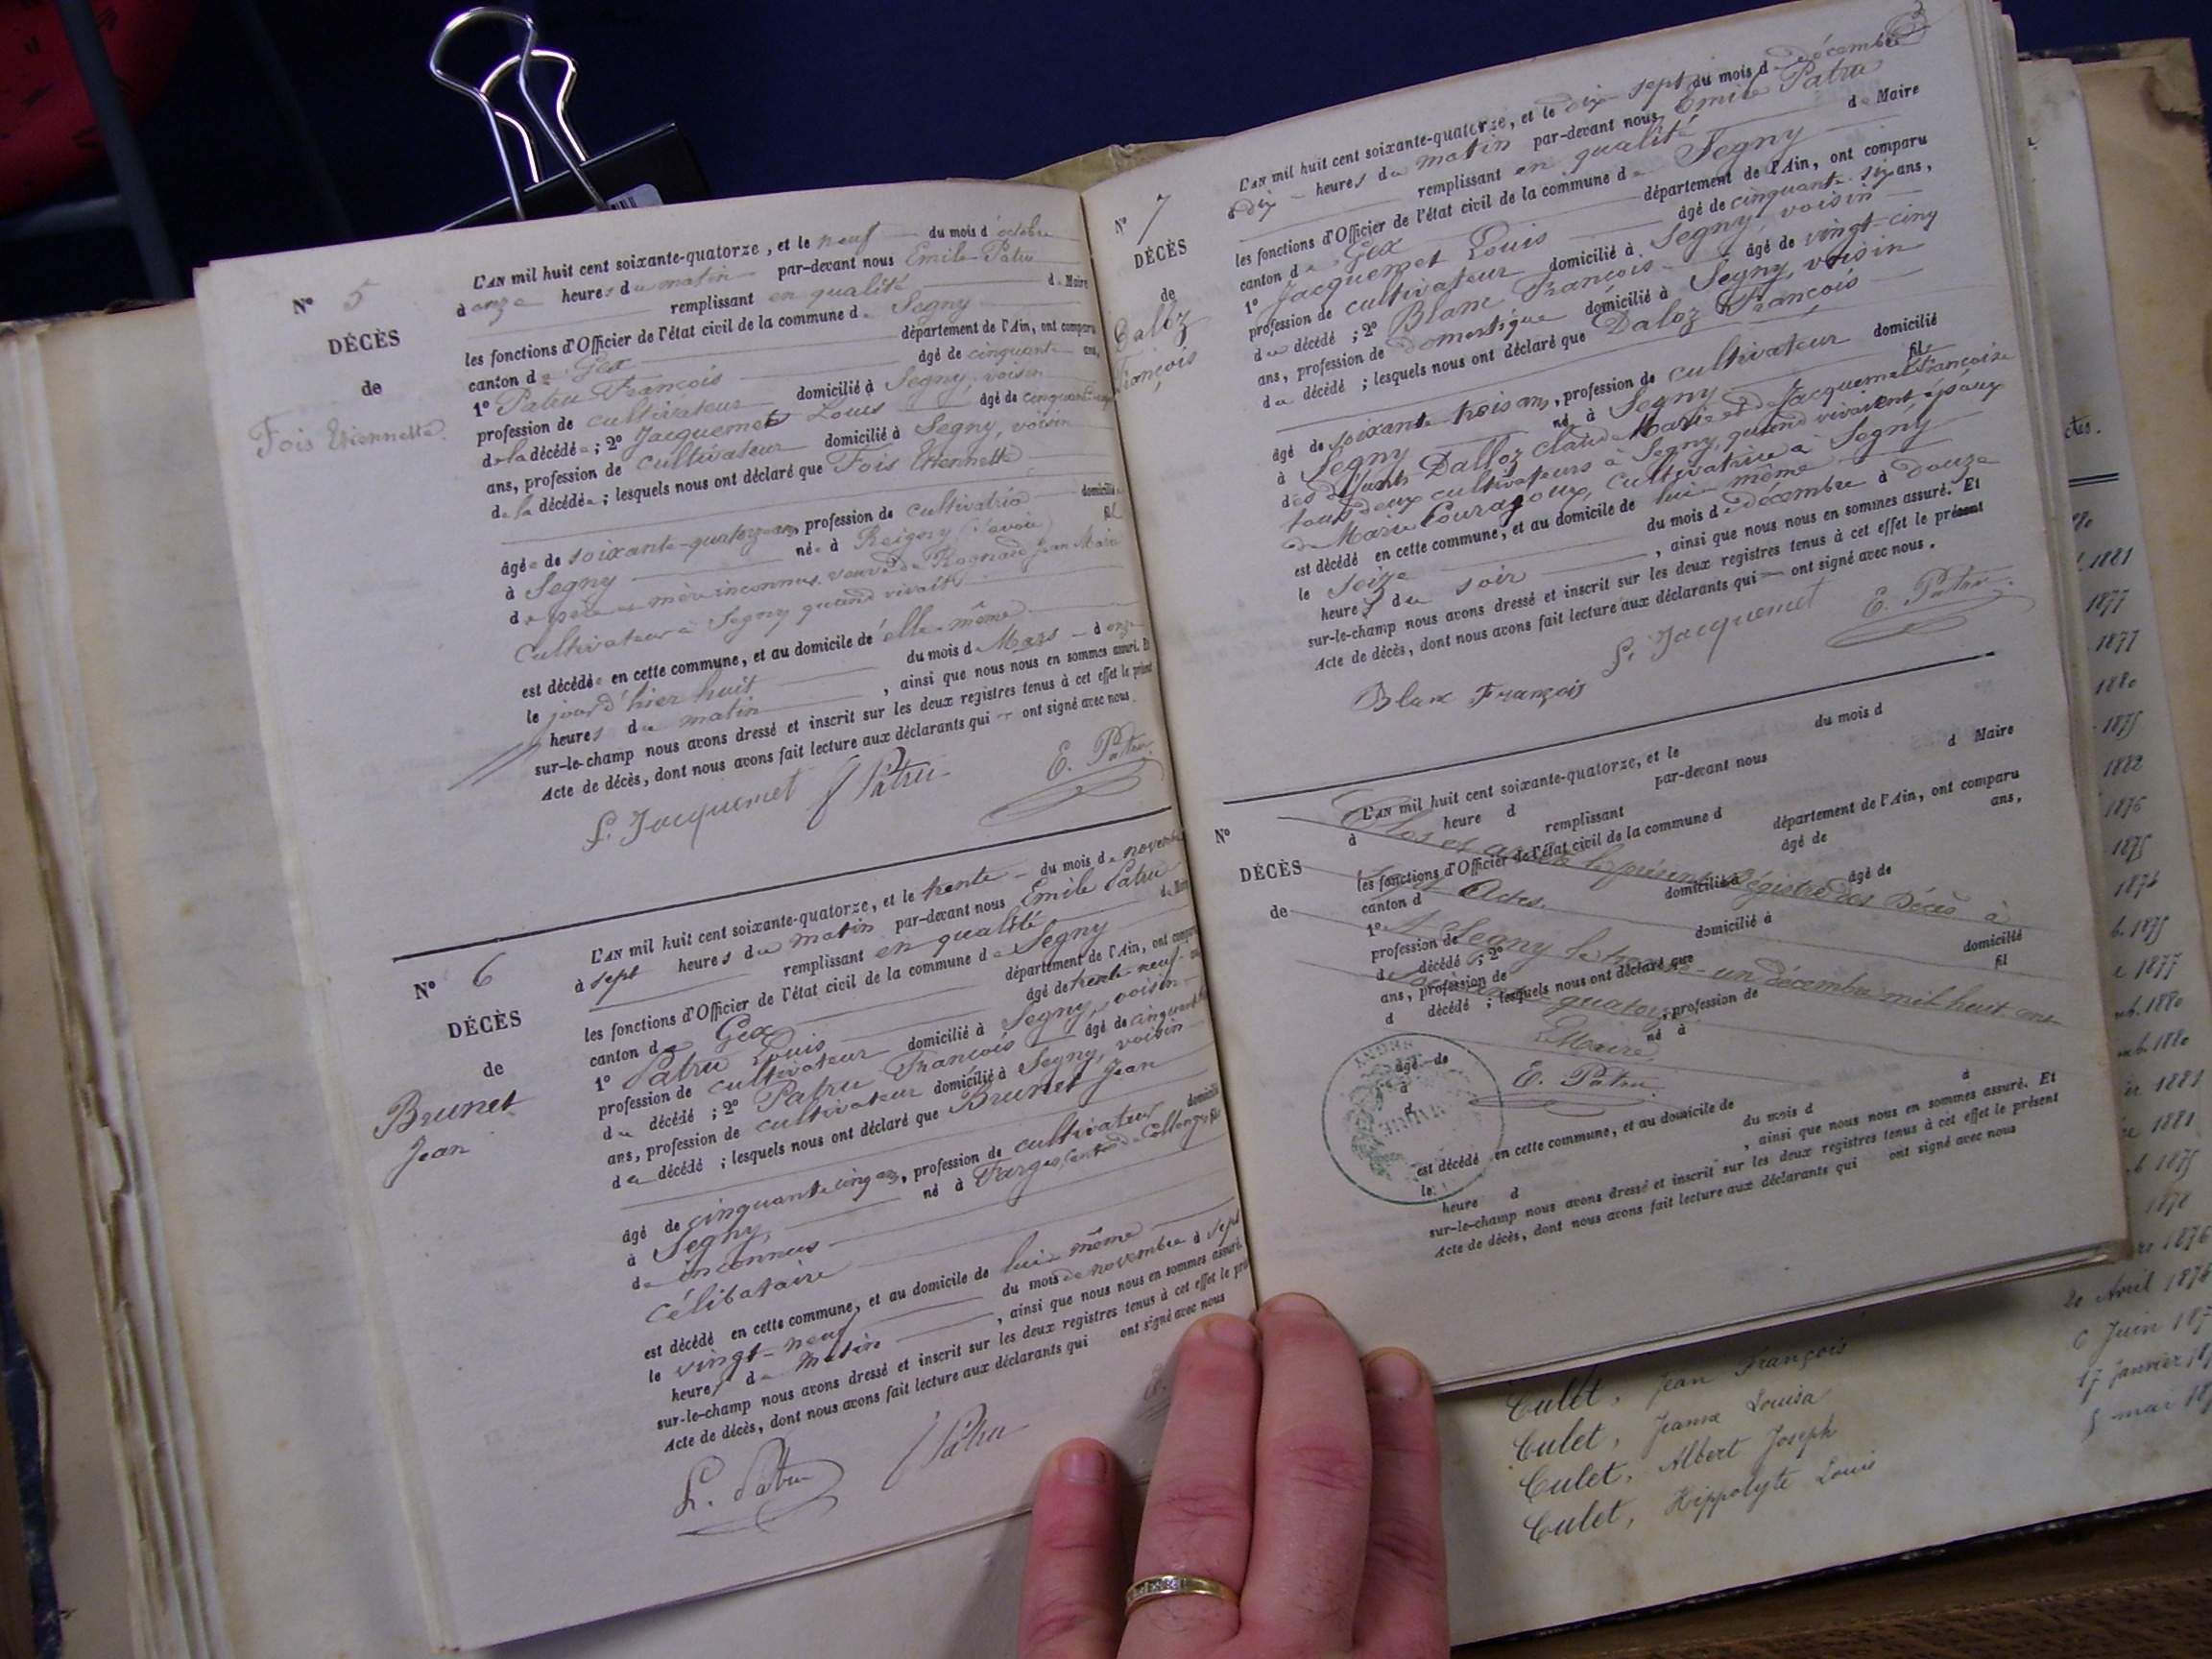 N° 5
DÉCÈS
de
Fois Etiennette
L'AN mil huit cent soixante-quatorze, et le neuf du mois d'octobre
à onze heures du matin par-devant nous Emile Patru
remplissant en qualité de Maire
les fonctions d'Officier de l'état civil de la commune de Segny
canton de Gex département de l'Ain, ont comparu
1° Patru François âgé de cinquante ans,
profession de cultivateur domicilié à Segny, voisin
de la décédée ; 2° Jacquemet Louis âgé de cinquante-six
ans, profession de cultivateur domicilié à Segny, voisin
de la décédée ; lesquels nous ont déclaré que Fois Etiennette
âgée de soixante-quatorze ans, profession de cultivatrice domicilié
à Segny née à Reigny (Savoie) fil
de père et mère inconnus, veuve de Jean Marie
Cultivateur à Segny quand vivait
est décédée en cette commune, et au domicile de elle-même
le jour d'hier huit du mois de Mars à onze
heures du matin , ainsi que nous nous en sommes assuré. Et
sur-le-champ nous avons dressé et inscrit sur les deux registres tenus à cet effet le présent
Acte de décès, dont nous avons fait lecture aux déclarants qui ont signé avec nous.
L. Jacquemet Patru E. Patru
N° 6
DÉCÈS
de
Brunet
Jean
L'AN mil huit cent soixante-quatorze, et le trente du mois de novembre
à sept heures du matin par-devant nous Emile Patru
remplissant en qualité de Maire
les fonctions d'Officier de l'état civil de la commune de Segny
canton de Gex département de l'Ain, ont comparu
1° Patru Louis âgé de trente-neuf ans
profession de cultivateur domicilié à Segny, voisin
du décédé ; 2° Patru François âgé de cinquante
ans, profession de cultivateur domicilié à Segny, voisin
du décédé ; lesquels nous ont déclaré que Brunet Jean
âgé de cinquante cinq ans, profession de cultivateur domicilié
à Segny, né à Farges canton de Collonges fil
de inconnus
célibataire
est décédé en cette commune, et au domicile de lui-même
le vingt-neuf du mois de novembre à sept
heures du matin , ainsi que nous nous en sommes assuré.
sur-le-champ nous avons dressé et inscrit sur les deux registres tenus à cet effet le pré
Acte de décès, dont nous avons fait lecture aux déclarants qui ont signé avec nous
L. Patru Patru E.
3
N° 7
DÉCÈS
de
Dalloz
François
L'AN mil huit cent soixante-quatorze, et le dix-sept du mois de Décembre
à dix heures du matin par-devant nous Emile Patru
remplissant en qualité de Maire
les fonctions d'Officier de l'état civil de la commune de Segny
canton de Gex département de l'Ain, ont comparu
1° Jacquemet Louis âgé de cinquante-six ans,
profession de cultivateur domicilié à Segny, voisin
du décédé ; 2° Blanc François âgé de vingt-cinq
ans, profession de domestique domicilié à Segny, voisin
du décédé ; lesquels nous ont déclaré que Daloz François
âgé de soixante trois ans, profession de cultivateur domicilié
à Segny né à Segny fils
des défunts Dalloz Claude Marie et de Jacquemet Françoise
tous deux cultivateurs à Segny, quand vivaient, époux
de Marie Couragoux, cultivatrice à Segny
est décédé en cette commune, et au domicile de lui-même
le seize du mois de décembre à douze
heures du soir , ainsi que nous nous en sommes assuré. Et
sur-le-champ nous avons dressé et inscrit sur les deux registres tenus à cet effet le présent
Acte de décès, dont nous avons fait lecture aux déclarants qui ont signé avec nous.
L. Jacquemet E. Patru
Blanc François
N°
DÉCÈS
de
L'AN mil huit cent soixante-quatorze, et le du mois d
à heure d par-devant nous
remplissant d Maire
les fonctions d'Officier de l'état civil de la commune d
canton d département de l'Ain, ont comparu
1° âgé de ans,
profession de domicilié à
d décédé ; 2° âgé de
ans, profession de domicilié à
d décédé ; lesquels nous ont déclaré que
âgé de , profession de domicilié
à né à fil
d
est décédé en cette commune, et au domicile de
le du mois d à
heure d , ainsi que nous nous en sommes assuré. Et
sur-le-champ nous avons dressé et inscrit sur les deux registres tenus à cet effet le présent
Acte de décès, dont nous avons fait lecture aux déclarants qui ont signé avec nous
Clos et arrêté le présent Régistre des Décès à
Sept Actes.
A Segny le trente-un décembre mil huit cent
soixante quatorze
Le Maire
E. Patru
MAIRIE
1881
1877
1877
1880
1875
1882
1876
1875
1876
1875
1877
1880
1880
1881
1881
1875
1876
20 Avril 1878
6 Juin 187
17 Janvier 18
5 mai 18
Culet, Jean François
Culet, Jeanne Louisa
Culet, Albert Joseph
Culet, Hippolyte Louis